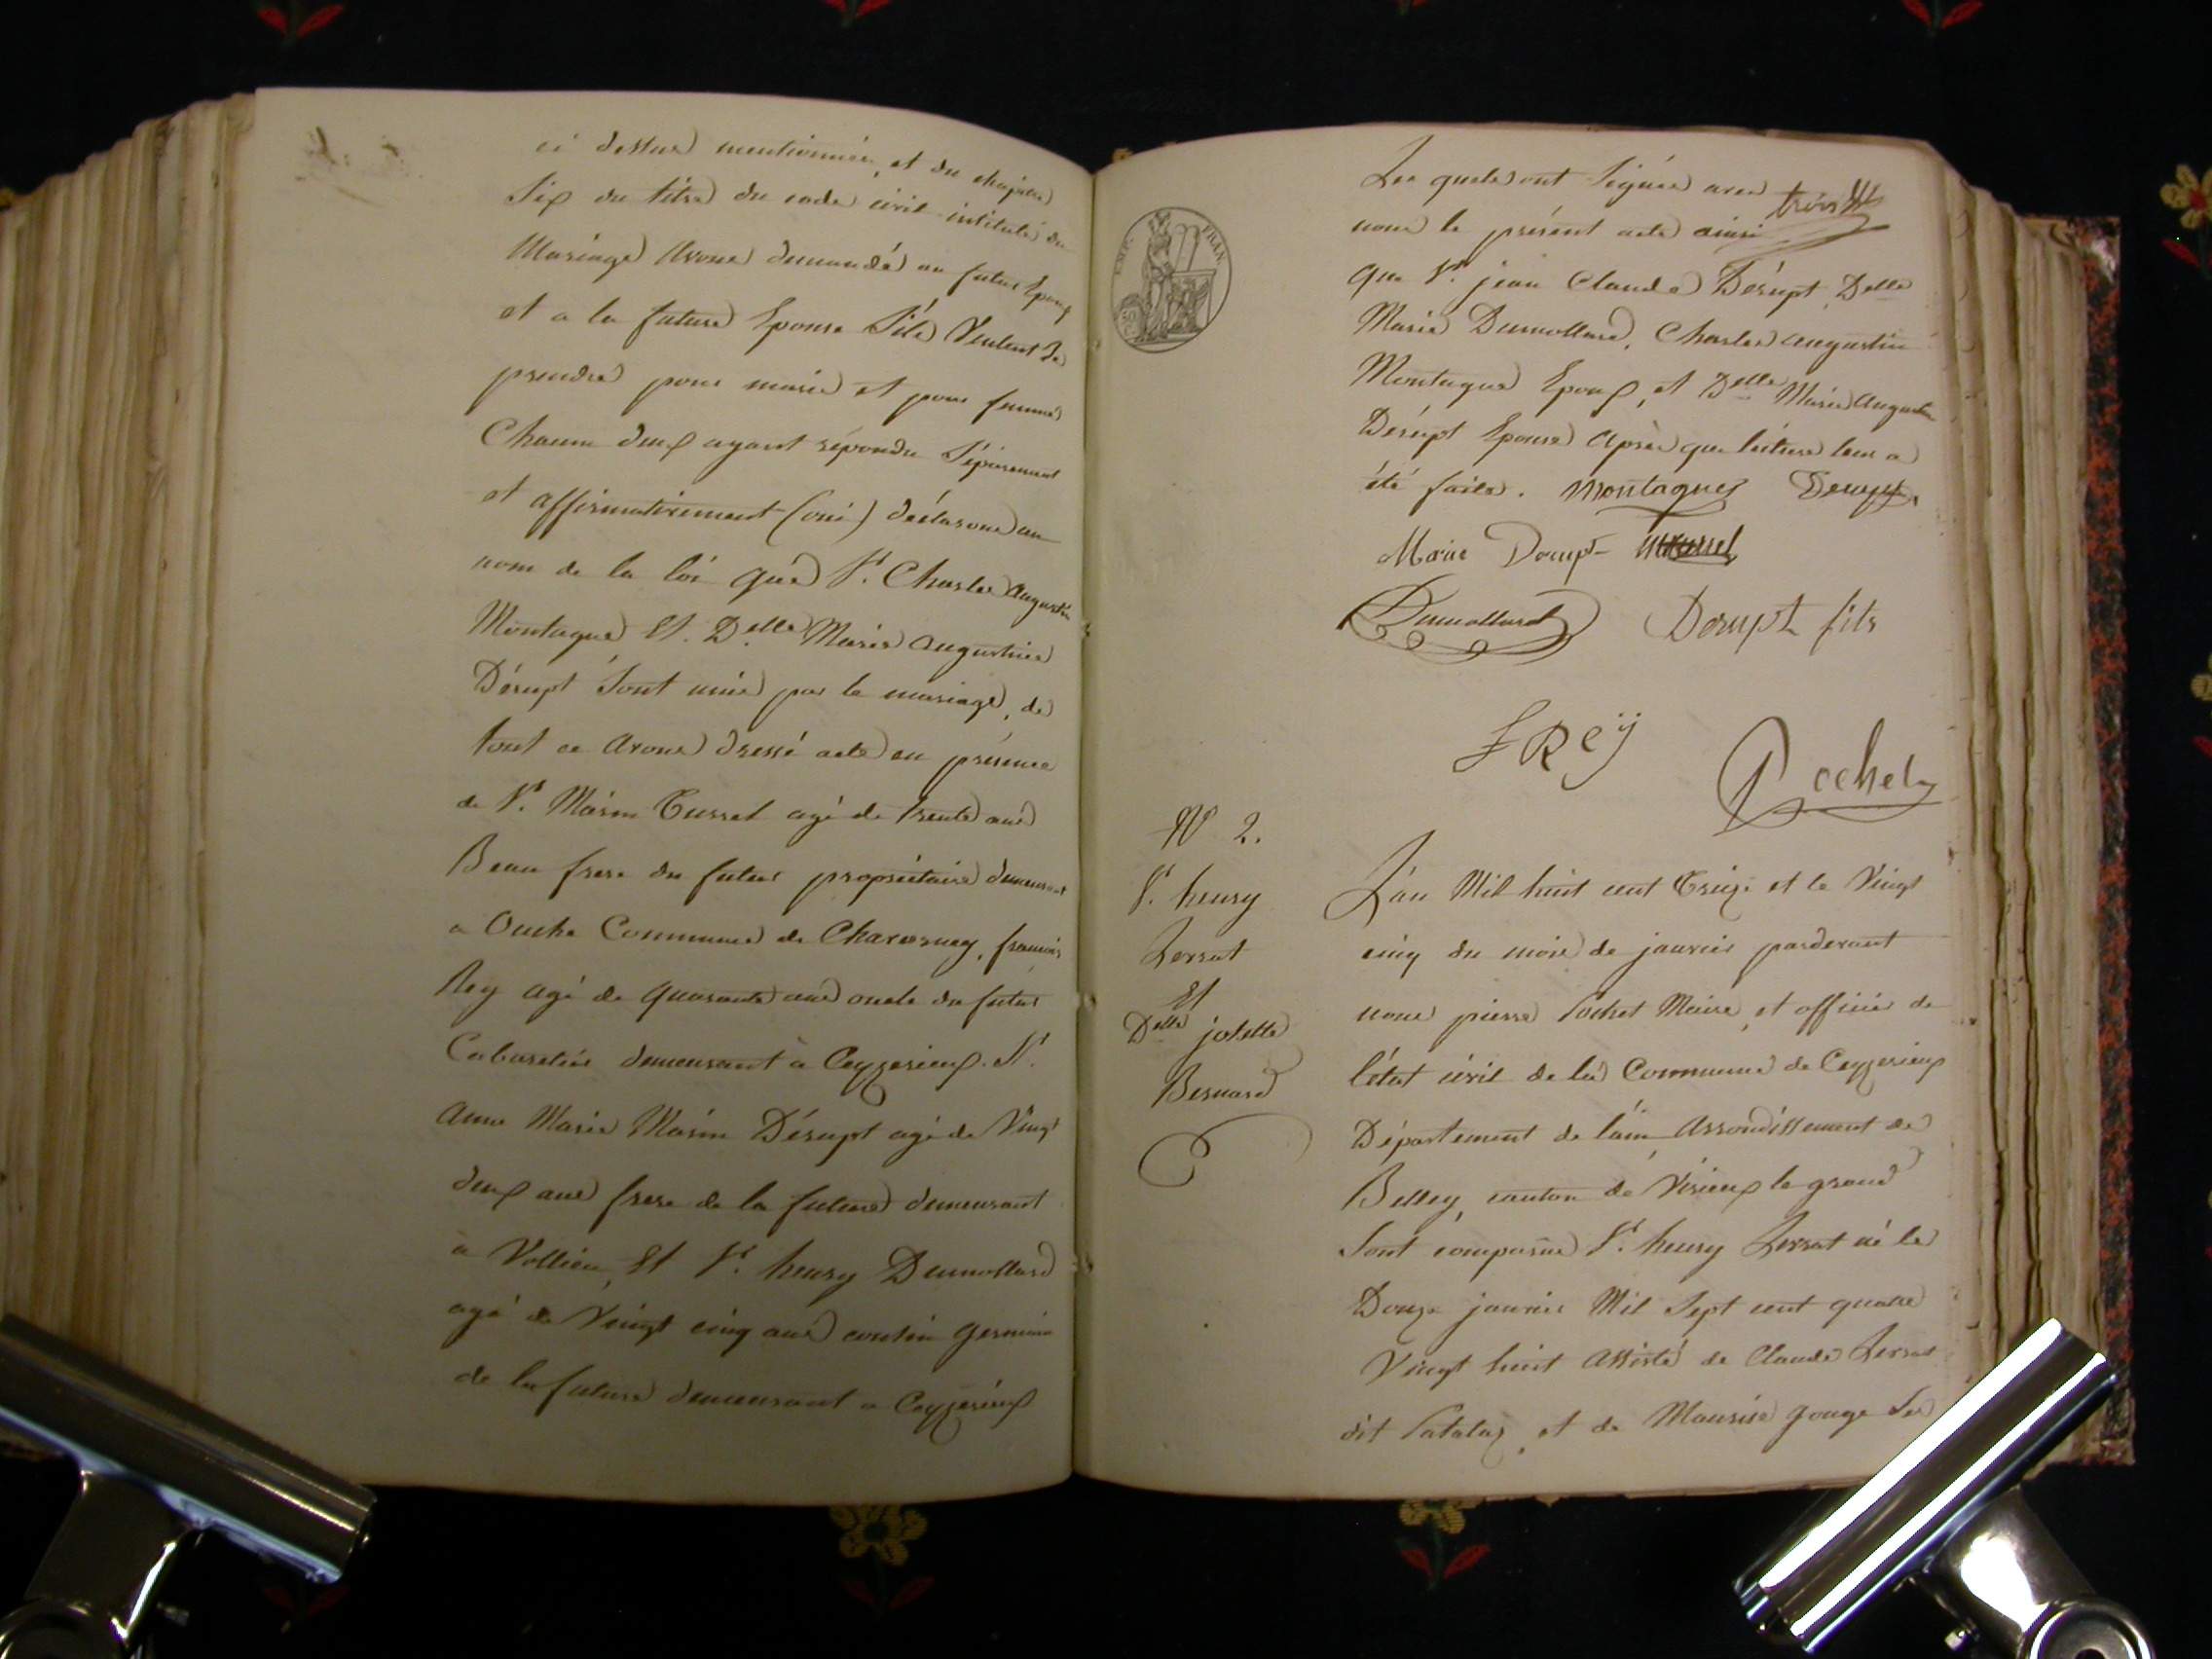 ci dessus mentionnée, et du chapitre
Six du titre du code civil intitulé du
Mariage Avons demandé au futur Epoux
et a la future Epouse S'ils Veulent Se
prendre pour marie et pour femme
Chacun deux ayant répondu Séparement
et affirmativement (oui) déclarons au
nom de la loi que Sr. Charles Augustin
Montagne Et Delle Marie Augustine
Dérupt Sont unie par le mariage, de
tout ce Avons dressé acte en présence
de Sr. Marin Cusset agé de trente ans
Beau frere du futur propriétaire demeurant
a Ouche Commune de Chavornay, francois
Rey agé de quarante ans oncle du futur
Cabaretier demeurant à Ceyzerieux. Sr.
Anne Marie Marin Dérupt agé de Vingt
deux ans frere de la future demeurant
à Vollien, Et Sr. henry Dumollard
agé de Vingt cinq ans cousin germain
de la future demeurant a Ceyzerieux
trois
EMP. FRAN.
Les quels ont Signés avec
nous le présent acte ainsi
que Sr. jean Claude Dérupt, Delle
Marie Dumollard, Charles augustin
Montagne Epoux, et Delle Marie Augustine
Dérupt Epouse Après que lecture leur a
été faite. Montagne Derupt
Marie Derupt
Dumollard Derupt fils
f Rey
Pochet
No 2.
Sr. henry
Zerrat
Et
Delle josette
Bernard
L'an Mil huit cent Treize et le Vingt
cinq du mois de janvier pardevant
nous pierre Pochet Maire, et officier de
l'état civil de la Commune de Ceyzerieux
Département de l'ain, Arrondissement de
Belley, canton de Virieux le grand
Sont comparus Sr. henry Zerrat né le
Douze janvier Mil Sept cent quatre
Vingt huit Assisté de Claude Zerrat
dit Patalaz, et de Maurise gouge Ses